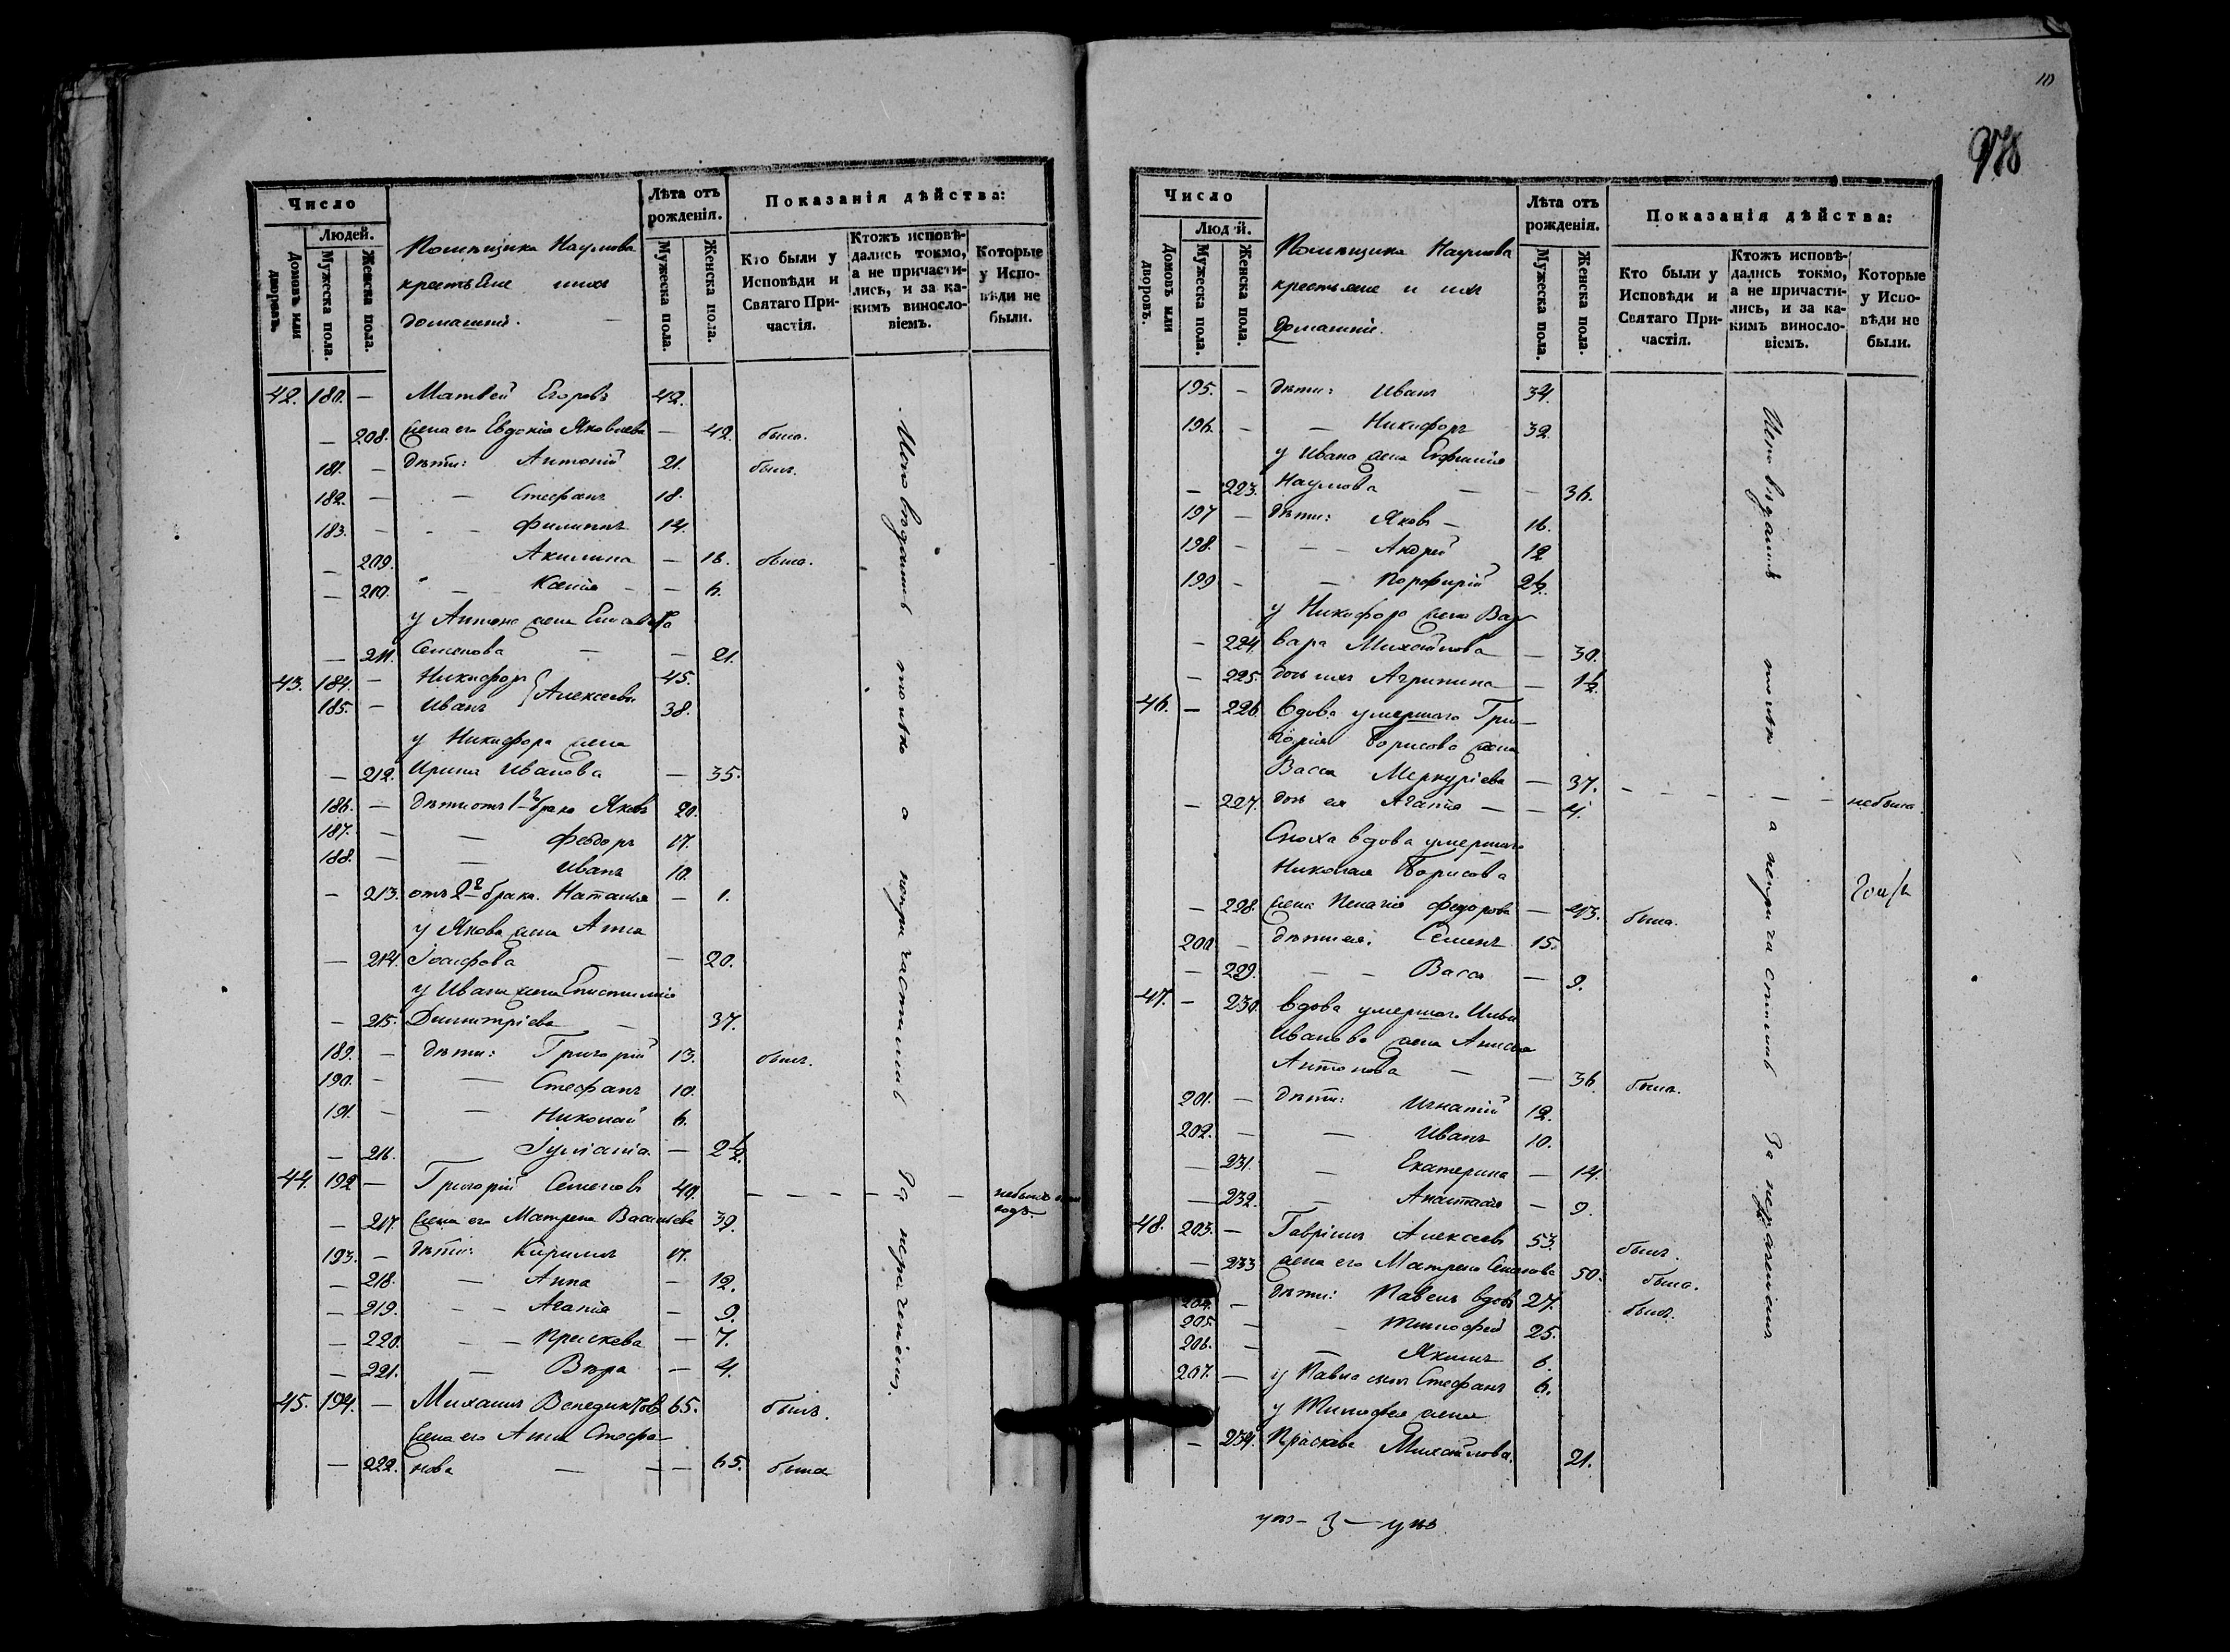 Число
Людей.
Домовъ или дворовъ.
Мужеска пола.
Женска пола.
Помѣщика Наумова
крестьяне ихъ
домашніе.
Лѣта отъ рожденія.
Мужеска пола.
Женска пола.
Показанія дѣйства:
Кто были у Исповѣди и Святаго При-частія.
Ктожъ исповѣ-дались токмо, а не причасти-лись, и за ка-кимъ винословіемъ.
Которые у Испо-вѣди не были.
42. 180. — Матвей Егоровъ 42.
— 208. жена его Евдокія Яковлева — 42. была.
181. — дѣти: Антоній 21. былъ.
182. — — Стефанъ 18.
183. — — Филиппъ 14.
— 209. Акилина — 16. была.
— 210. — Ксенія — 6.
у Антона жена Елисавета
— 211. Семенова — — 21.
43. 184. — Никифоръ 45.
185. — Иванъ } Алексеевы 38.
у Никифора жена
— 212. Ирина Иванова — 35.
186. — дѣти отъ 1го брака Яковъ 20.
187. — — Феодоръ 17.
188. — — Иванъ 10.
— 213. отъ 2го брака. Наталья — 1.
у Якова жена Анна
— 214. Іосифова — — 20.
у Ивана жена Епистимія
— 215. Димитріева — 37.
189. — дѣти: Григорій 13. былъ.
190. — — Стефанъ 10.
191. — — Николай 6.
— 216. — Іуліанія — 2 1/2.
44. 192 — Григорій Семеновъ 40. — — — — — небылъ
годъ.
— 217. жена его Матрена Васильева 39.
193. — дѣти: Кирилъ 17.
— 218. — Анна — 12.
— 219. — — Агапія — 9.
— 220. — — Праскева — 7.
— 221. — Вѣра — 4.
45. 194. — Михаилъ Венедиктовъ 65. былъ.
жена его Анна Стефа-
— 222. нова — — — 65. была
Исповѣдались только а непричастились За нерачениемъ.
10
Число
Людей.
Домовъ или дворовъ.
Мужеска пола.
Женска пола.
Помѣщика Наумова
крестьяне и ихъ
домашніе.
Лѣта отъ рожденія.
Мужеска пола.
Женска пола.
Показанія дѣйства:
Кто были у Исповѣди и Святаго При-частія.
Ктожъ исповѣ-дались токмо, а не причасти-лись, и за ка-кимъ винословіемъ.
Которые у Испо-вѣди не были.
195. — дѣти: Иванъ 34.
196. — — Никифоръ 32.
у Ивана жена Евфимія
— 223. Наумова — — 36.
197 — дѣти: Яковъ — 16.
198. — — — Андрей 12
199 — — Порфирій 2 1/2.
у Никифора жена Вар-
— 224. вара Михайлова — 30.
— 225. дочь ихъ Агрипина — 1 1/2.
46. — 226. вдова умершаго Гри-
горія Борисова жена
Васса Меркуріева — 37. — — — — — небыла.
— 227. дочь ея Агапія — — 4.
Сноха вдова умершаго
Николая Борисова
— 228. жена Пелагія Федорова — 43. была.
200 — дѣти ея: Семенъ 15.
— 229. — — Васса — 9.
47. — 230. вдова умершаго
Иванова жена Анисья
Антонова — — 36 была.
201. — дѣти: Игнатій 12.
202. — — Иванъ 10.
— 231. — Екатерина — 14.
— 232. — Анастасія — 9.
48. 203. — Гавріилъ Алексеевъ 53. былъ.
— 233 жена его Матрена Семенова 50. была.
204. — дѣти: Павелъ вдовъ 27. былъ.
205. — — Тимофей 25.
206. — — Якимъ 6.
207. — у Павла сынъ Стефанъ 6.
у Тимофея жена
— 234. Праскева Михайлова. 21.
Исповѣдались только а непричастились За нерачениемъ